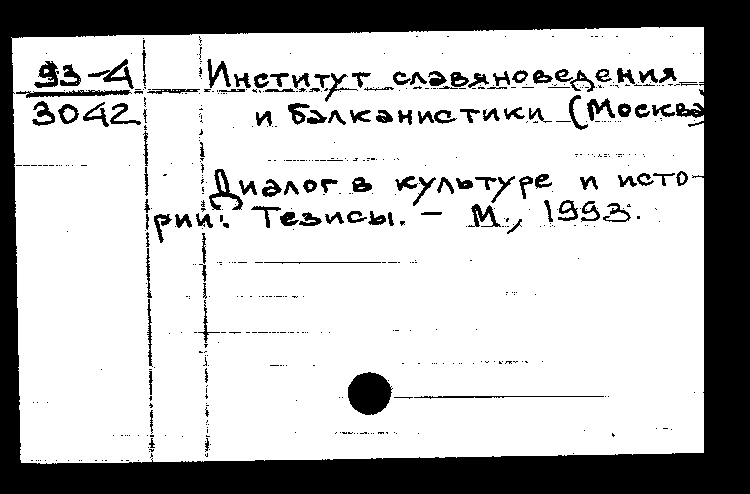 93-4
3042
Институт славяноведения
и балканистики (Москва)
Диалог в культуре и исто-
рии: Тезисы. – М., 1993.